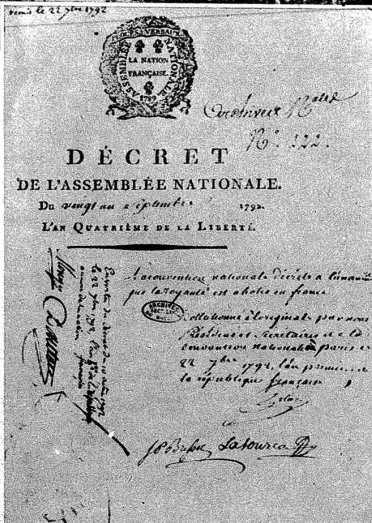 22 7bre 1792
ASSEMBLÉE NATIONALE
LA NATION
FRANÇAISE.
1792
Archives
No. 122.
DÉCRET
DE L'ASSEMBLÉE NATIONALE.
Du vingt un Septembre 1792.
L'AN QUATRIÈME DE LA LIBERTÉ.
La convention nationale décrète a l'unanimité
que la Royauté est abolie en france
Collationné à l'original par nous
Président et Secrétaires de la
convention nationale à paris le
22 7bre 1792, l'an premier de
la république française
le 22 7bre 1792
Danton
J P Brissot Lasource